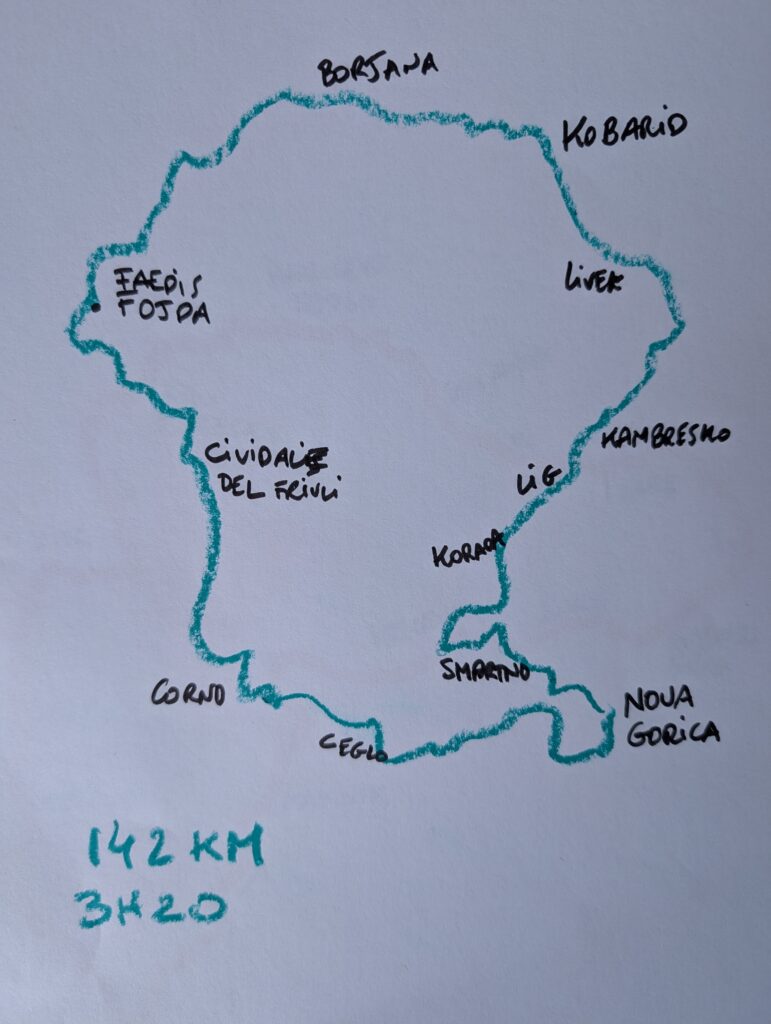 BORJANA
KOBARID
FAEDIS
FOJDA
LIVEK
KAMBRESKO
CIVIDALE
DEL FRIULI
LIG
KORADA
SMARTNO
CORNO
NOVA
GORICA
CEGLO
142 KM
3H20